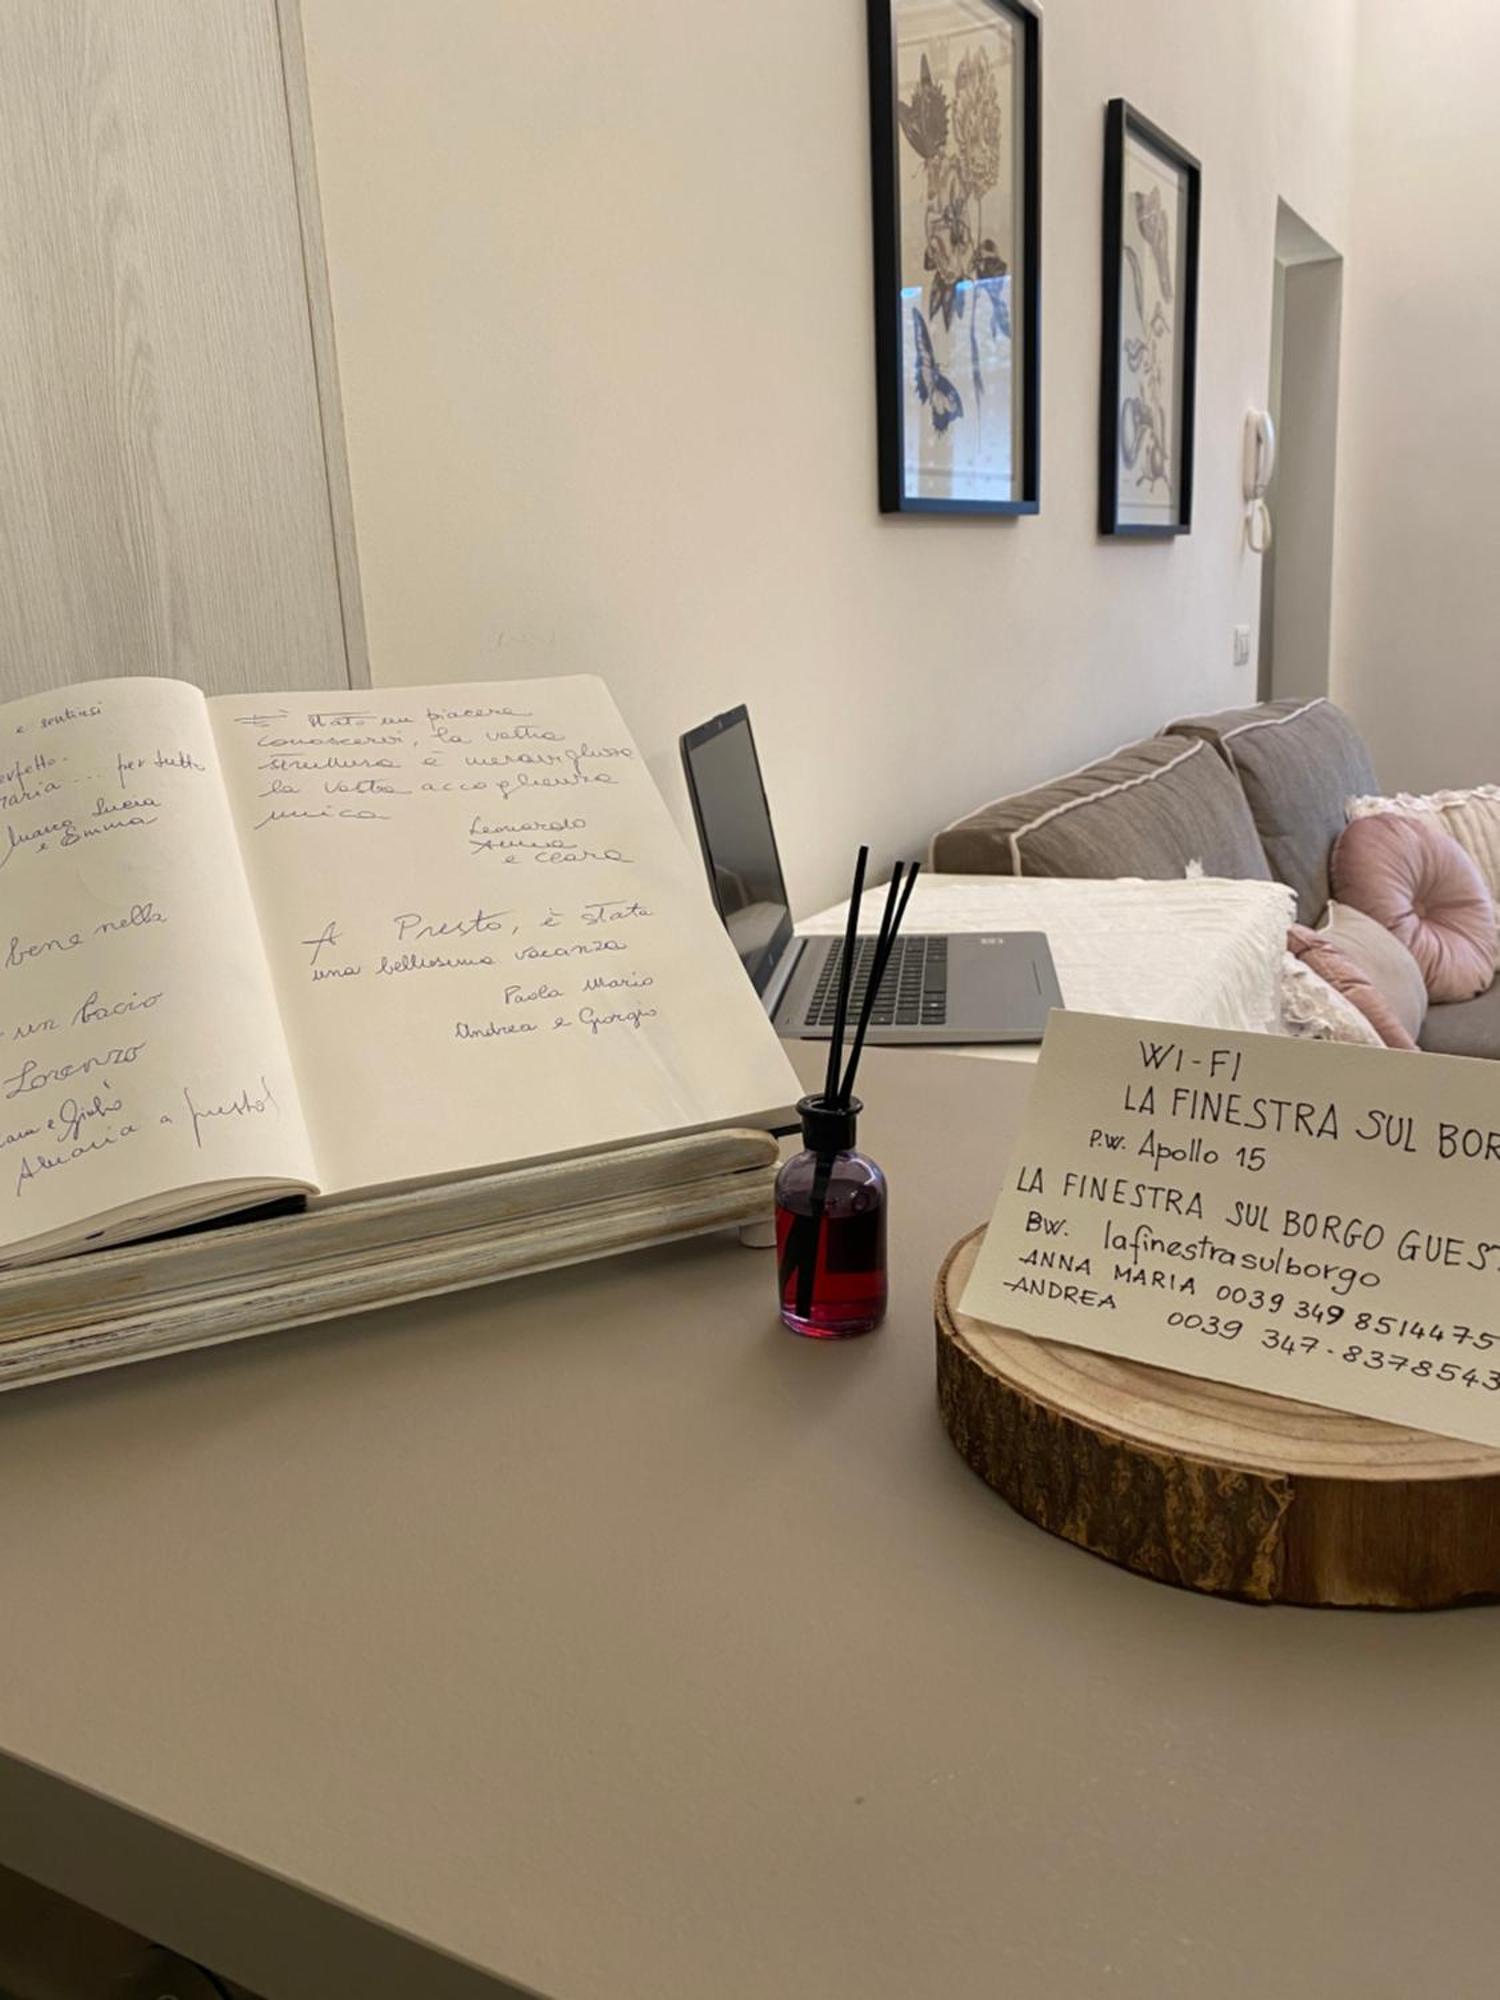 e sentirsi
per tutto
Lucia
e Emma
bene nella
un bacio
Lorenzo
e Giulio
a presto!
È stato un piacere
conoscervi, la vostra
struttura è meravigliosa
la vostra accoglienza
unica
Leonardo
Anna
e Clara
A Presto, è stata
una bellissima vacanza
Paola Mario
Andrea e Giorgio
WI-FI
LA FINESTRA SUL BOR
P.W. Apollo 15
LA FINESTRA SUL BORGO GUES
BW. lafinestrasulborgo
ANNA MARIA 0039 349 8514475
ANDREA 0039 347-8378543